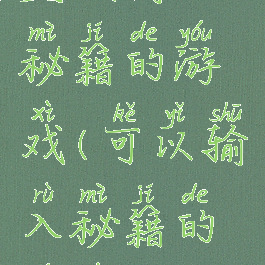 mì jí de yóu
秘籍的游
xì kě yǐ shū
戏(可以输
rù mì jí de
入秘籍的